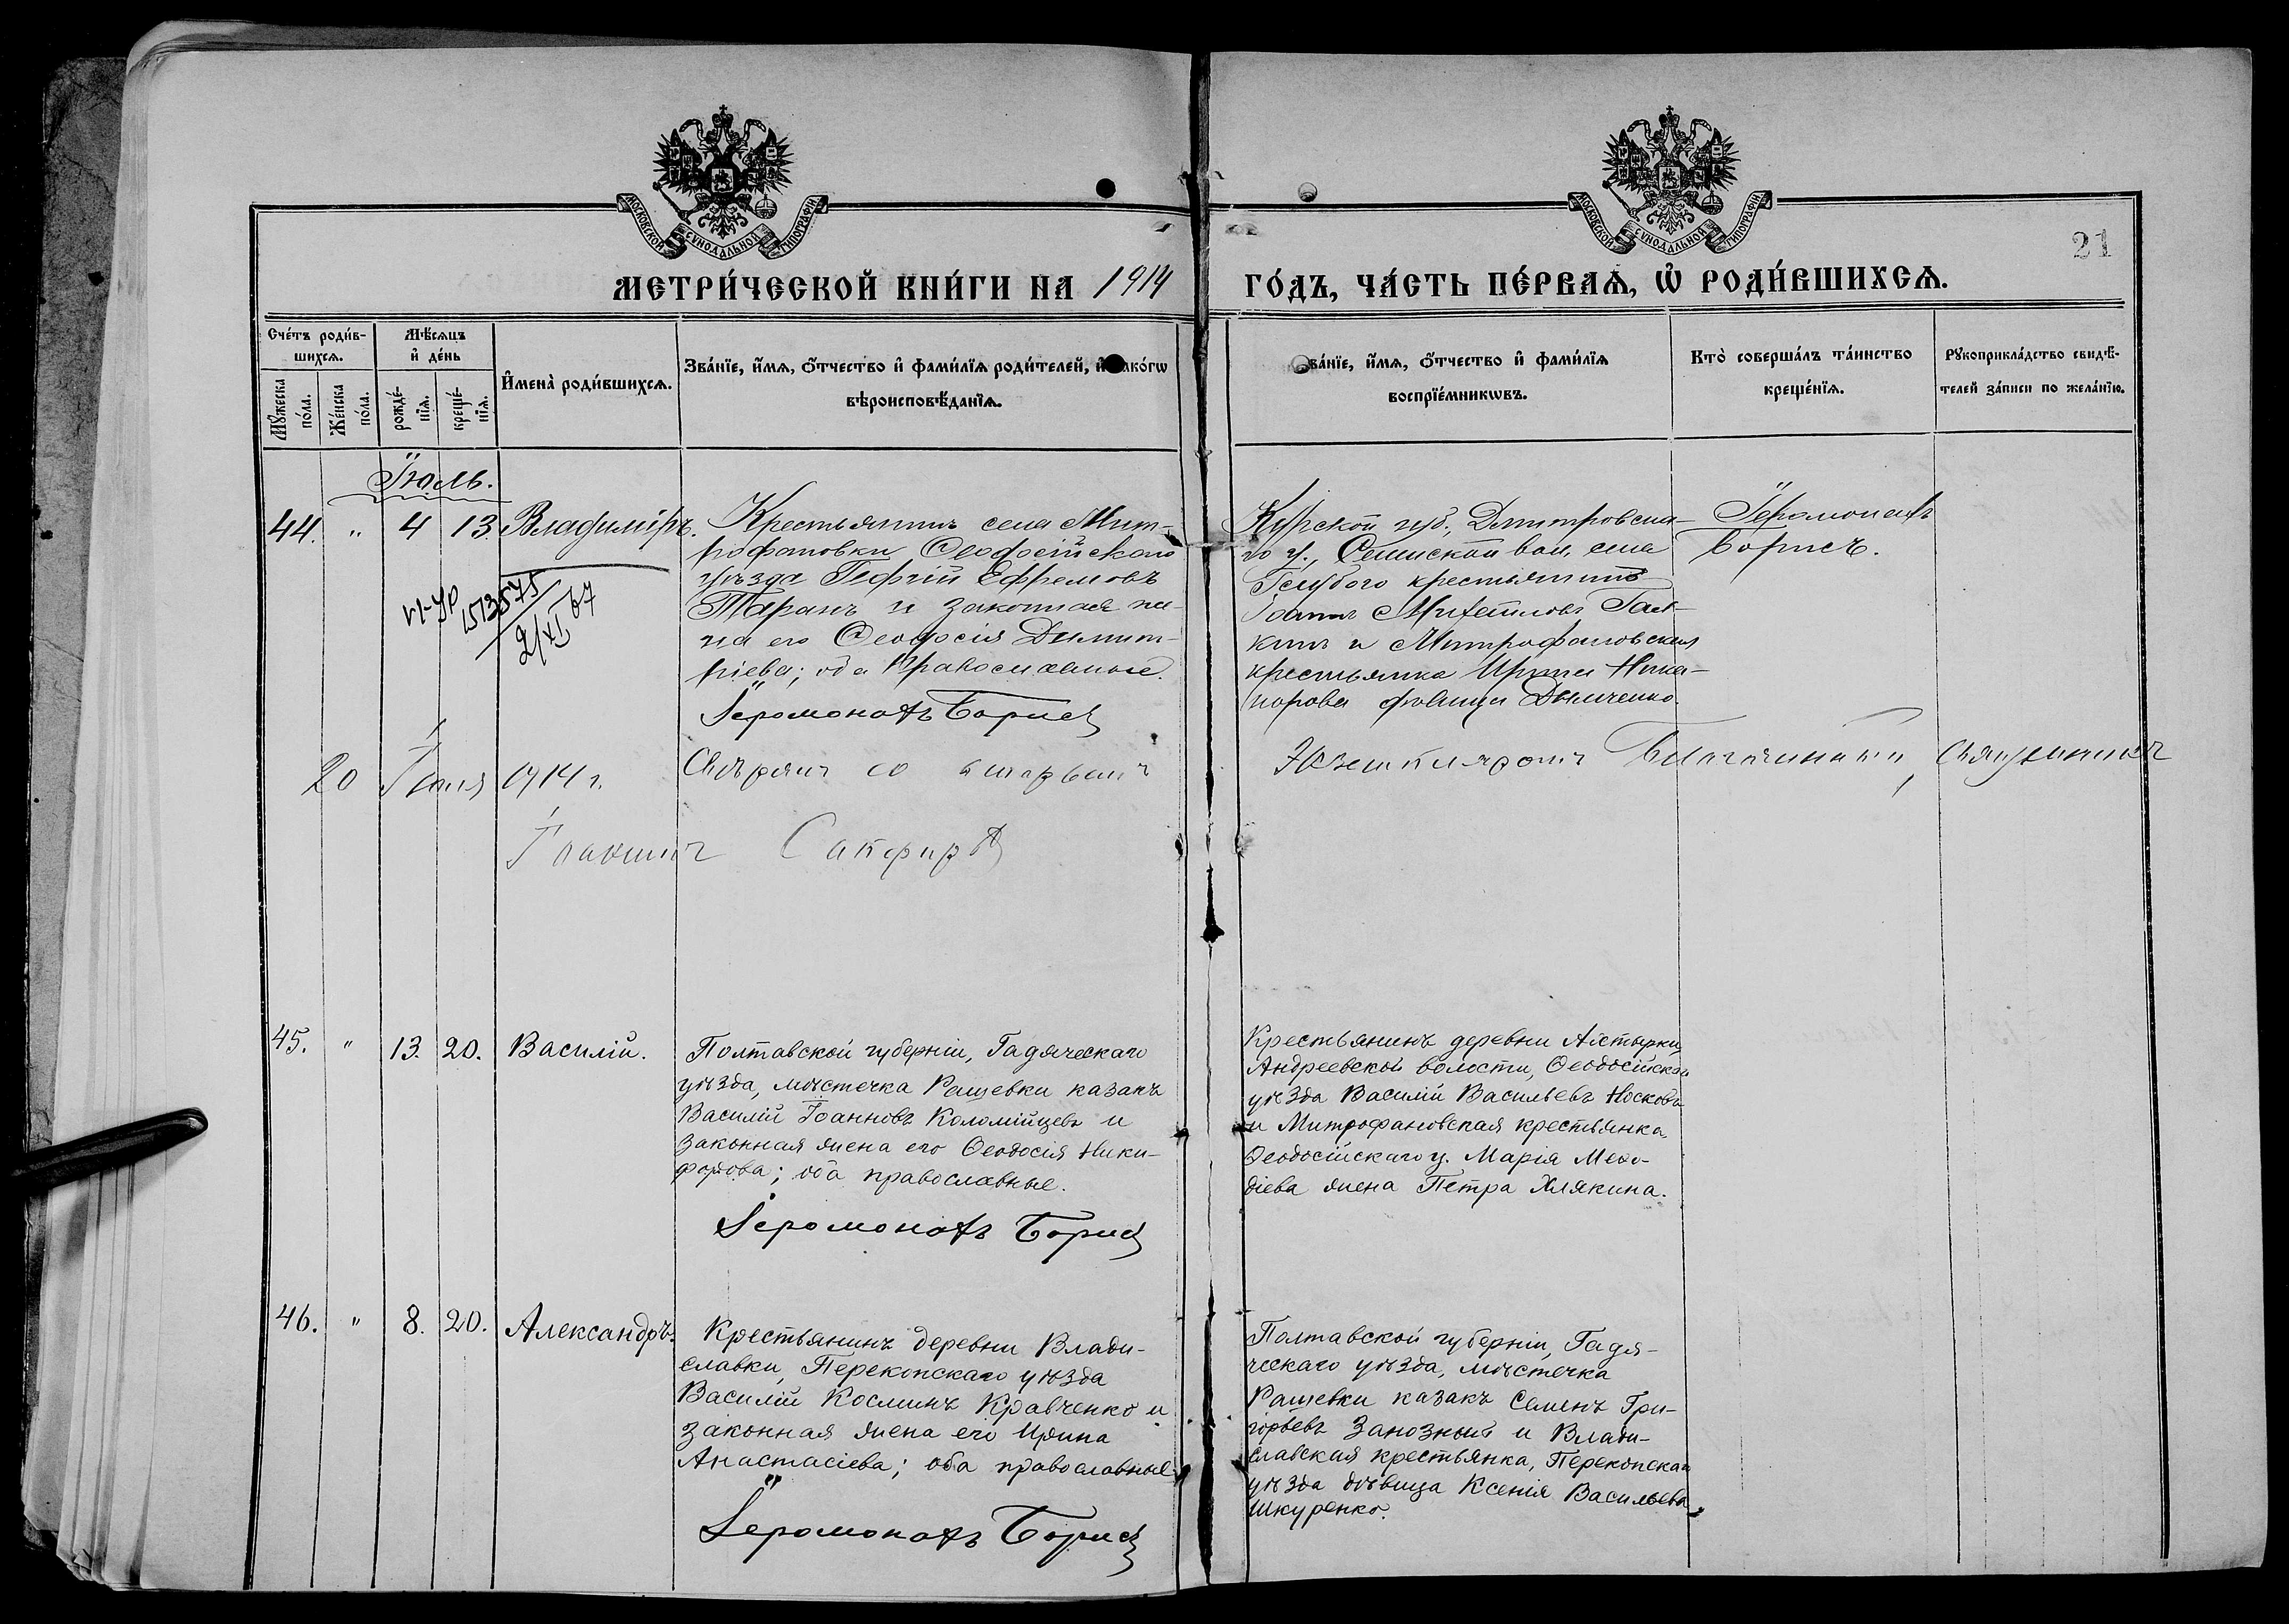 МОСКОВСКОЙ СѴНОДАЛЬНОЙ ТИПОГРАФІИ
МОСКОВСКОЙ СѴНОДАЛЬНОЙ ТИПОГРАФІИ
21
МЕТРИ́ЧЕСКОЙ КНИ́ГИ НА 1914 ГО́ДЪ, ЧА́СТЬ ПЕ́РВАѦ, Ѡ҆ РОДИ́ВШИХСѦ.
Сче́тъ роди́в-
шихсѧ.
Мꙋ́жеска
по́ла.
Же́нска
по́ла.
Мѣ́сѧцъ
и҆ де́нь
рожде́-
нїѧ.
креще́-
нїѧ.
И҆мена̀ роди́вшихсѧ.
Зва́нїе, и҆́мѧ, ѻ҆́тчество и҆ фами́лїѧ роди́телей, и҆ како́гѡ
вѣроисповѣ́данїѧ.
Зва́нїе, и҆́мѧ, ѻ҆́тчество и҆ фами́лїѧ
воспрїе́мникѡвъ.
Кто̀ соверша́лъ та́инство
креще́нїѧ.
Рꙋкоприкла́дство свидѣ́-
телей за́писи по жела́нїю.
Іюль.
44. " 4 13. Владиміръ.
Крестьянинъ села Мит-
рофановки Ѳеодосійскаго
уѣзда Георгій Ефремовъ
Таранъ и законная же-
на его Ѳеодосія Димит-
ріева; оба православные.
Іеромонахъ Борисъ
Курской губ., Дмитровска-
го у., вол. села
крестьянинъ
Іоаннъ Михаиловъ
и Митрофановская
крестьянка Ирина Ника-
норова дѣвица Дымченко.
Іеромонахъ
Борисъ.
VI-УР
1513575
2/XI 67
20 Іюля 1914 г. Свѣрялъ со вторымъ экземпляромъ Благочинный, Священникъ
Іоакимъ
45. " 13. 20. Василій.
Полтавской губерніи, Гадяческаго
уѣзда, мѣстечка Рашевки казакъ
Василій Іоанновъ Коломійцевъ и
законная жена его Ѳеодосія Ники-
форова; оба православные.
Іеромонахъ Борисъ
Крестьянинъ деревни Айстырки,
Андреевской волости, Ѳеодосійскаго
уѣзда Василій Васильевъ Носковъ
и Митрофановская крестьянка,
Ѳеодосійскаго у. Марія Меѳо-
діева жена Петра Хлякина.
46. " 8. 20. Александръ.
Крестьянинъ деревни Влади-
славки, Перекопскаго уѣзда
Василій Косминъ Кравченко и
законная жена его Ирина
Анастасіева; оба православные.
Іеромонахъ Борисъ
Полтавской губерніи, Гадя-
ческаго уѣзда, мѣстечка
Рашевки казакъ Семенъ Гри-
горьевъ Занозный и Влади-
славская крестьянка, Перекопскаго
уѣзда дѣвица Ксенія Васильева
Шкуренко.